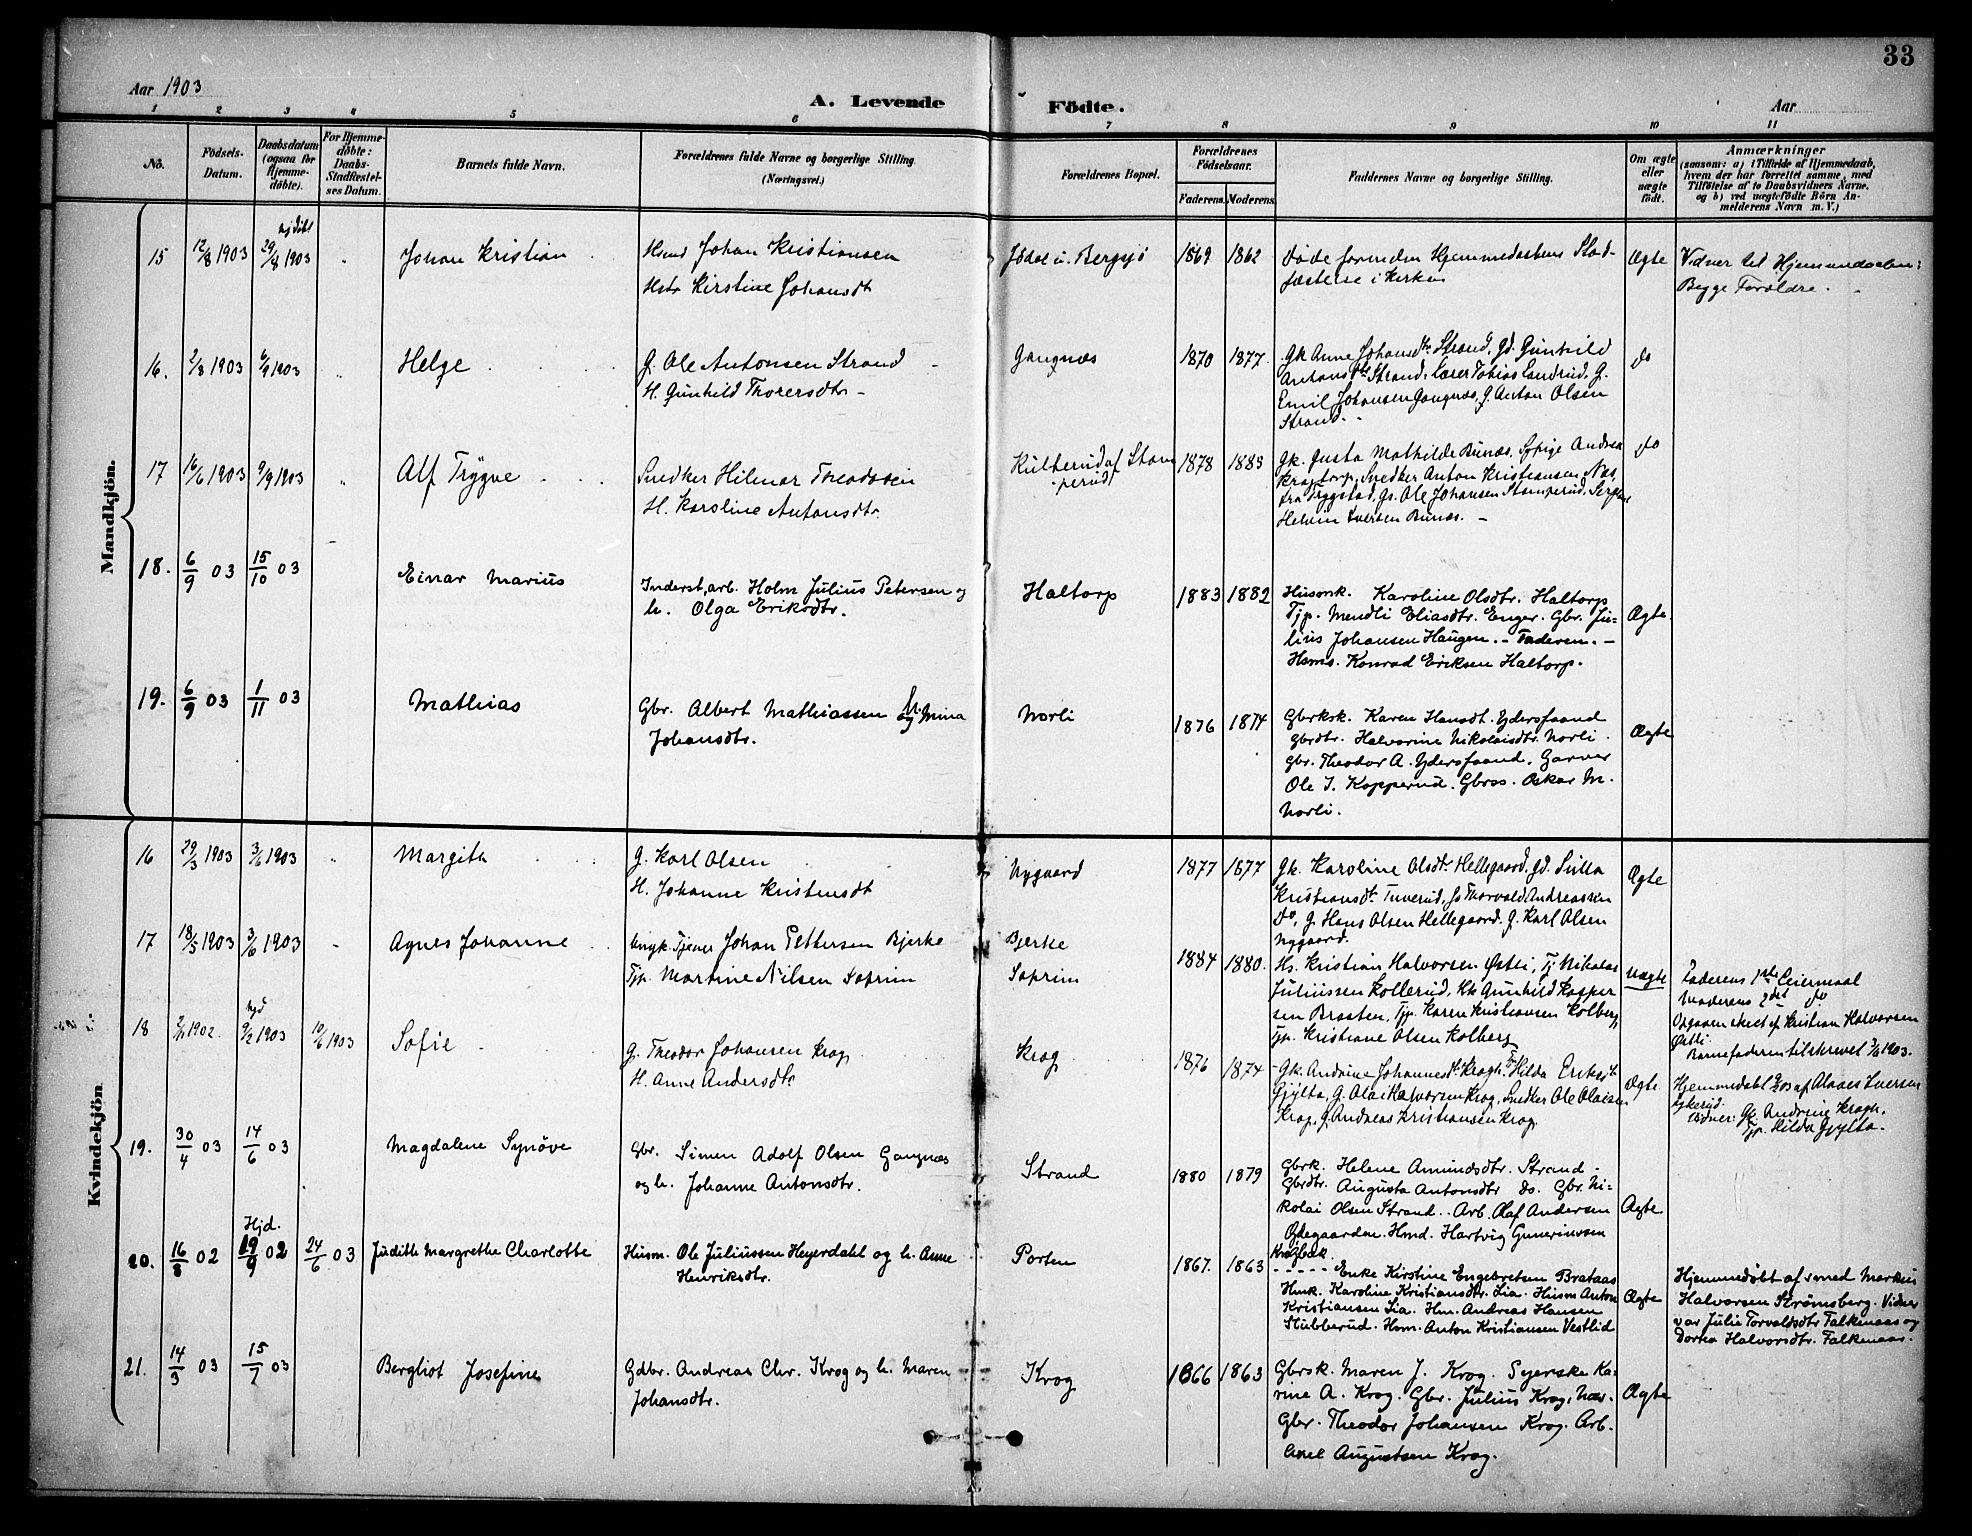 33
Aar 1903
A. Levende Födte.
Aar
1 2 3 4 5 6 7 8 9 10 11
No.
Födsels-
Datum.
Daabsdatum
(ogsaa for
Hjemme-
döbte).
For Hjemme-
döbte:
Daabs-
Stadfæstel-
ses Datum.
Barnets fulde Navn.
Forældrenes fulde Navne og borgerlige Stilling.
(Næringsvei.)
Forældrenes Bopæl.
Forældrenes
Födselsaar.
Faderens. Moderens.
Faddernes Navne og borgerlige Stilling.
Om ægte
eller
uægte
födt.
Anmærkninger
(saasom: a) i Tilfælde af Hjemmedaab,
hvem der har forrettet samme, med
Tilföielse af to Daabsvidners Navne,
og b) ved uægtefödte Börn An-
melderens Navn m. V.)
Mandkjön.
15 12/8 1903 29/8 1903 " Johan Kristian
Johan Kristiansen
Kirstine Johansdt
Bergsjø 1869 1862
Hjemmedaabens Stad-
fæstelse i Kirken
Ægte
Vidner til Hjemmedaaben:
Begge Forældre.
16. 2/8 1903 6/9 1903 " Helge
G. Ole Antonsen Strand
H. Gunhild Thorersdtr
Gangnæs 1870 1877.
Gk Anne Johansdtr Strand, Gd. Gunhild
Antonsdtr Strand, Lærer Tobias Sandrud, G.
Emil Johansen Gangnæs, G. Anton Olsen
Strand.
do
17 16/6 1903 9/9 1903 " Alf Trygve
Snedker Hilmar Theodosen
H. Karoline Antonsdtr.
Kulterud af Stom
perud 1878 1883
Gk. Gusta Mathilde Bunæs, Sypige Andrea
Snedker Anton Kristiansen Næs,
Gs. Ole Johansen Stomperud,
Helvin Iversen Bunæs.
do
18. 6/9 03 15/10 03 Einar Marius
Inderst, arb. Holm Julius Petersen og
h. Olga Eriksdtr.
Haltorp 1883 1882
Husmk. Karoline Olsdtr. Haltorp
Tjp. Mendli Eliasdtr. Enger. Gbr. Ju-
lius Johansen Haugen. - Faderen. -
Hsms. Konrad Eriksen Haltorp.
Ægte.
19. 6/9 03 1/11 03 Mathias
Gbr. Albert Mathiassen og h. Mina
Johansdtr.
Norli 1876 1874
Gbrksk. Karen Hansdt. Ydersfaand
Gbrdtr. Halvorine Nikolaisdtr. Norli.
Gbr. Theodor A. Ydersfaand. Garver
Ole I. Kopperud. Gbrss. Oskar M.
Norli.
Ægte
Kvindekjön
16 29/3 1903 3/6 1903 " Margith
G. Karl Olsen
H. Johanne Kristensdt
Nygaard 1877 1877
Gk. Karoline Olsdt. Hellegaard, Gd.
Kristiansdt. Tuverud, Gs Thorvald Andreassen
Do, G. Hans Olsen Hellegaard, G. Karl Olsen
Nygaard.
Ægte
17 18/5 1903 3/6 1903 Agnes Johanne
Ungk. Tjener Johan Pettersen Bjerke
Tjp. Martine Nilsen Soprim
Bjerke
Soprim 1884 1880.
Hs. Kristian Halvorsen Østli, Tj Nikolai
Juliussen Kollerud, Kk Gunhild Kasper
sen Braaten, Tjp. Karen Kristiansen Kolberg,
Tjp. Kristiane Olsen Kolberg
Uægte
Faderens 1ste Leiermaal
Moderens 2det do
Opgaven skeet af Kristian Halvorsen
Østli.
Barnefaderen tilskrevet 3/6 1903.
18 2/11 1902. 9/2 1903 10/6 1903 Sofie
G. Theodor Johansen Krog
H. Anne Andersdtr
Krog 1876 1874
Gk. Andrine Johannesdtr Krogh. Hilda Eriksdt
Gjylta, G. Olai Halvorsen Krog, Snedker Ole Olaisen
Krog, G. Andreas Kristiansen Krog.
Ægte
Hjemmedøbt af Iversen
Vidner: Gk. Andrine Krogh,
Tjp. Hilda Gjylta.
19. 30/4 03 14/6 03 Magdalene Synöve
Gbr. Simen Adolf Olsen Gangnæs
og h. Johanne Antonsdtr.
Strand 1880 1879
Gbrk. Helene Amundsdtr. Strand -
Gbrdtr. Augusta Antonsdtr do. Gbr. Ni-
kolai Olsen Strand.. Arb. Olaf Andersen
Ødegaarden. Hmd. Hartvig Gunerinssen
Krogbæk.
Ægte
20. 16/8 02 Hjd. 19/9 02 24/6 03 Judith Margrethe Charlotte
Husm. Ole Juliussen Heyerdahl og h. Anne
Henriksdtr.
Porten 1867. 1863
- - - - - Enke Kirstine Engebretsen Brataas
Hmk. Karoline Kristiansdtr. Lia. Husm Anton
Kristiansen Lia. Hm. Andreas Hansen
Stubberud. Hsm. Anton Kristiansen Vestlid
Ægte
Hjemmedøbt af smed Markus
Halvorsen Strømsberg. Vidner
var Julie Torvaldsdtr. Falkenaas og
Dorthea Halvorsdtr. Falkenaas.
21. 14/3 03 15/7 03 Bergliot Josefine
Gdbr. Andreas Chr. Krog og h. Maren
Johansdtr.
Krog 1866 1863
Gbrsk. Maren J. Krog. Syerske Ka-
rine A. Krog. Gbr. Julius Krog, Næs.
Gbr. Theodor Johansen Krog. Arb.
Axel Augustsen Krog.
Ægte